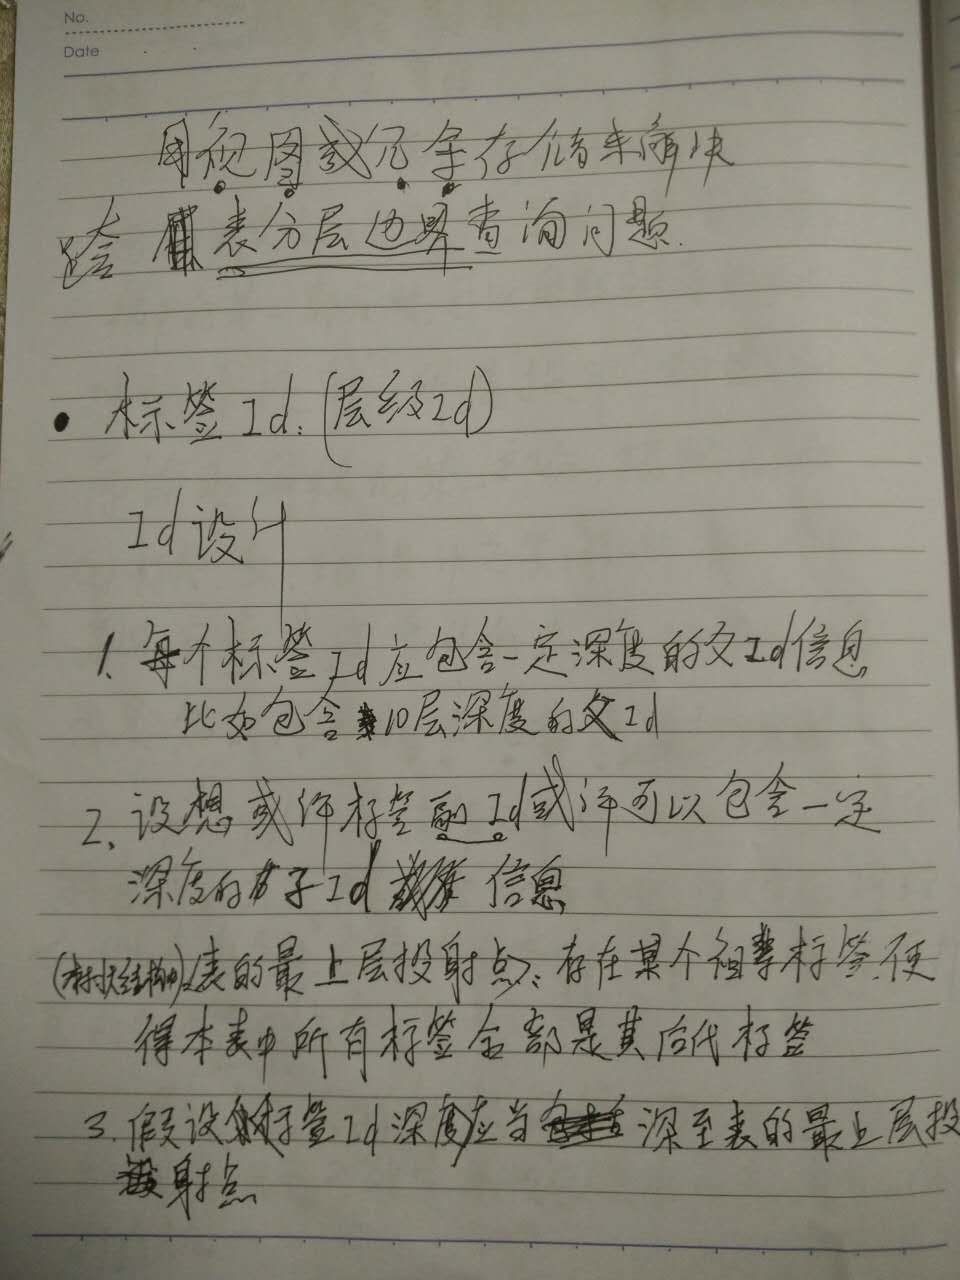 No.
Date
用视图或冗余存储来解决
跨表分层边界查询问题.
• 标签Id:(层级Id)
Id设计
1. 每个标签Id应包含一定深度的父Id信息
比如包含10层深度的父Id
2. 设想或许标签副Id或许可以包含一定
深度的子Id信息
(树状结构中)表的最上层投射点: 存在某个祖辈标签,使
得本表中所有标签全部是其后代标签
3. 假设标签Id深度应当深至表的最上层投
射点